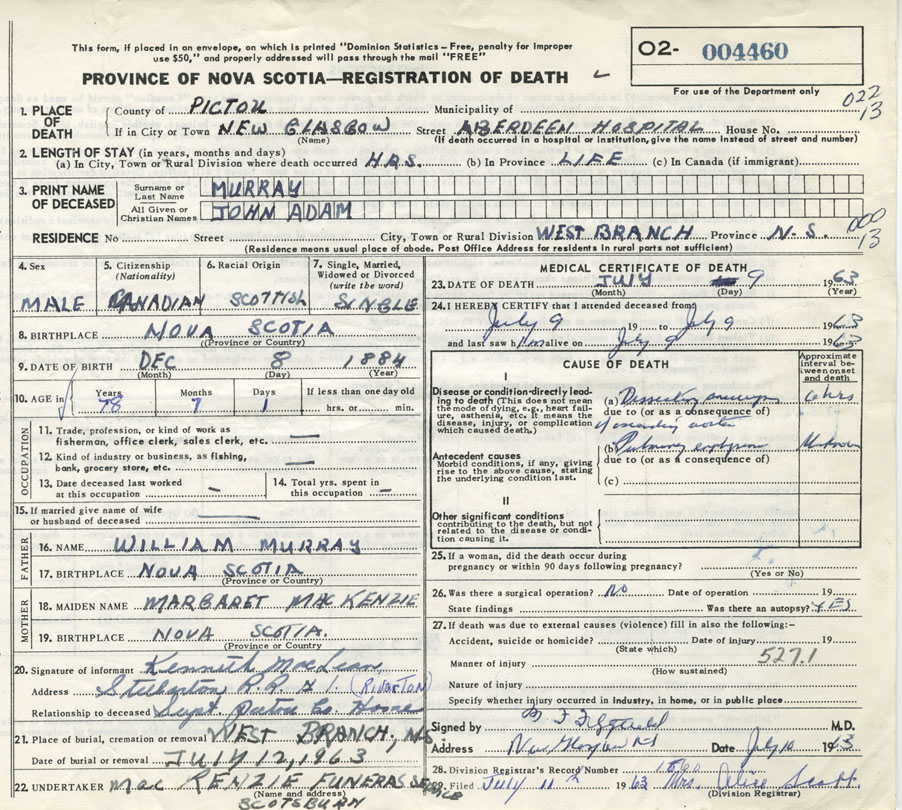 This form, if placed in an envelope, on which is printed "Dominion Statistics – Free, penalty for Improper
use $50," and properly addressed will pass through the mail "FREE"
O2- 004460
PROVINCE OF NOVA SCOTIA—REGISTRATION OF DEATH
For use of the Department only
022
13
1. PLACE OF DEATH
County of PICTOU Municipality of
If in City or Town NEW GLASGOW Street ABERDEEN HOSPITAL House No.
(Name) (If death occurred in a hospital or institution, give the name instead of street and number)
2. LENGTH OF STAY (in years, months and days)
(a) In City, Town or Rural Division where death occurred HRS. (b) In Province LIFE (c) In Canada (if immigrant)
3. PRINT NAME OF DECEASED
Surname or Last Name MURRAY
All Given or Christian Names JOHN ADAM
000
13
RESIDENCE No Street City, Town or Rural Division WEST BRANCH Province N.S.
(Residence means usual place of abode. Post Office Address for residents in rural parts not sufficient)
4. Sex 5. Citizenship (Nationality) 6. Racial Origin 7. Single, Married, Widowed or Divorced (write the word)
MALE CANADIAN SCOTTISH SINGLE
8. BIRTHPLACE NOVA SCOTIA
(Province or Country)
9. DATE OF BIRTH DEC 8 1884
(Month) (Day) (Year)
10. AGE in Years Months Days If less than one day old
78 7 1 hrs. or min.
OCCUPATION
11. Trade, profession, or kind of work as
fisherman, office clerk, sales clerk, etc. —
12. Kind of industry or business, as fishing,
bank, grocery store, etc. —
13. Date deceased last worked at this occupation – 14. Total yrs. spent in this occupation –
15. If married give name of wife
or husband of deceased —
FATHER
16. NAME WILLIAM MURRAY
17. BIRTHPLACE NOVA SCOTIA
(Province or Country)
MOTHER
18. MAIDEN NAME MARGARET MACKENZIE
19. BIRTHPLACE NOVA SCOTIA.
(Province or Country)
20. Signature of informant Kenneth MacLean
Address Stellarton R.R # 1. (RIVERTON)
Relationship to deceased Supt. Pictou Co. Home
21. Place of burial, cremation or removal WEST BRANCH, N.S
Date of burial or removal JULY 12, 1963
22. UNDERTAKER MacKENZIE FUNERAL SERVICE
(Name and address)
SCOTSBURN
MEDICAL CERTIFICATE OF DEATH
23. DATE OF DEATH JULY 9 1963
(Month) (Day) (Year)
24. I HEREBY CERTIFY that I attended deceased from
July 9 19 to July 9 1963
and last saw him alive on July 9 1963
CAUSE OF DEATH
Approximate interval between onset and death
I
Disease or condition directly leading to death (This does not mean the mode of dying, e.g., heart failure, asthenia, etc. It means the disease, injury, or complication which caused death.)
(a) Dissecting aneurysm 6 hrs
due to (or as a consequence of)
of ascending aorta
Antecedent causes
Morbid conditions, if any, giving rise to the above cause, stating the underlying condition last.
(b) Pulmonary emphysema Unknown
due to (or as a consequence of)
(c)
II
Other significant conditions
contributing to the death, but not related to the disease or condition causing it.
25. If a woman, did the death occur during
pregnancy or within 90 days following pregnancy?
(Yes or No)
26. Was there a surgical operation? NO Date of operation 19
State findings Was there an autopsy? YES
27. If death was due to external causes (violence) fill in also the following:–
Accident, suicide or homicide? Date of injury 19
(State which)
527.1
Manner of injury
(How sustained)
Nature of injury
Specify whether injury occurred in industry, in home, or in public place
Signed by M.D.
Address New Glasgow NS Date July 10 1963
28. Division Registrar's Record Number
29. Filed July 11 1963 Mrs. Alice Scott.
(Division Registrar)